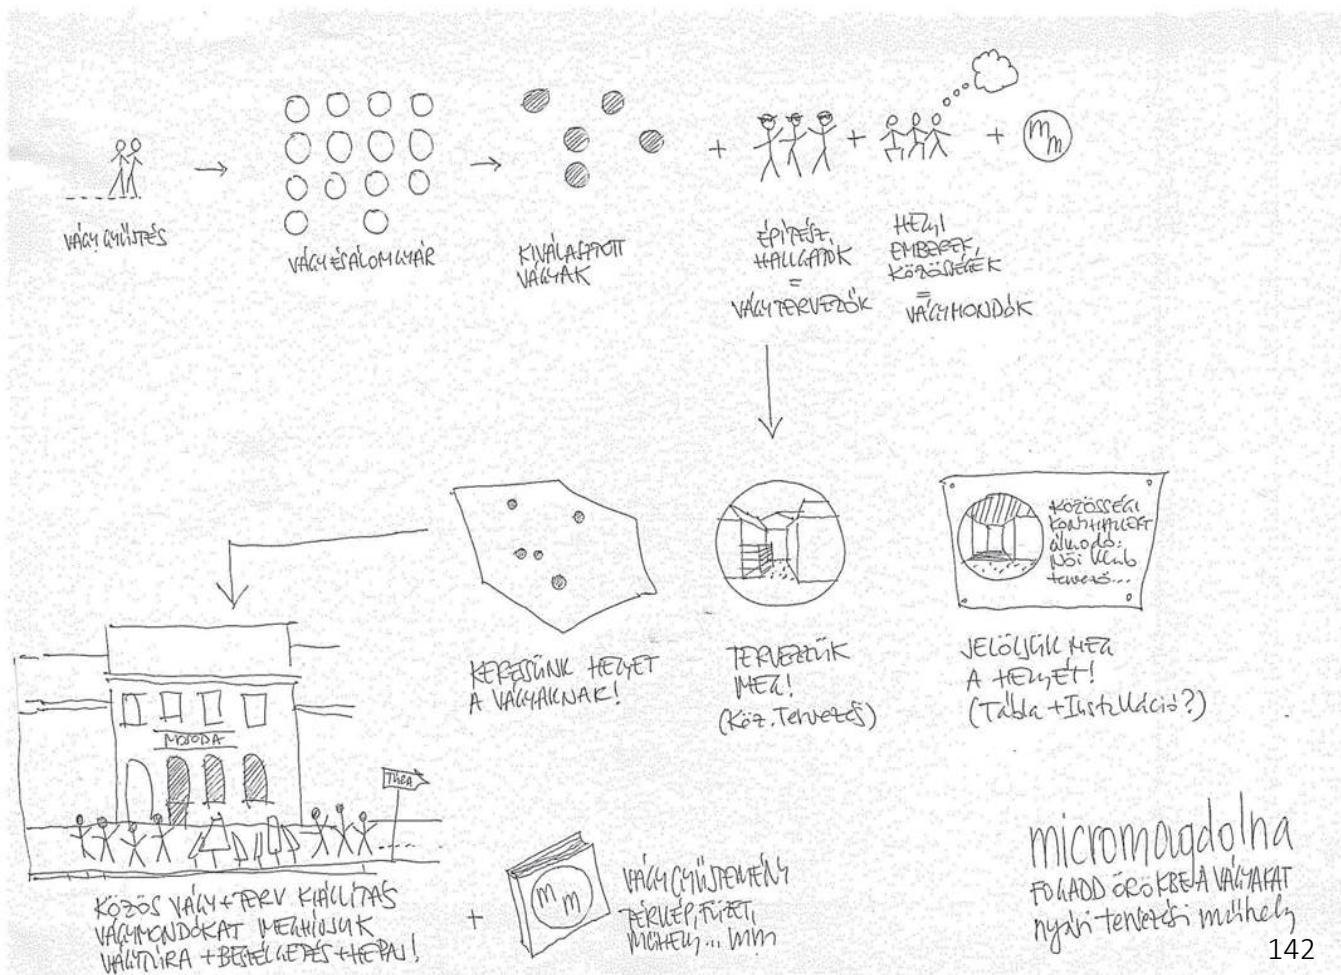 VÁGYGYŰJTÉS
VÁGY ÉS ÁLOMGYÁR
KIVÁLASZTOTT
VÁGYAK
+
+
+
mm
ÉPÍTÉSZ
HALLGATÓK
=
VÁGYTERVEZŐK
HELYI
EMBEREK,
KÖZÖSSÉGEK
=
VÁGYMONDÓK
KERESSÜNK HELYET
A VÁGYAKNAK!
TERVEZZÜK
MEG!
(Köz. Tervezés)
KÖZÖSSÉGI
álmodó:
Női Klub
tervező...
JELÖLJÜK MEG
A HELYÉT!
(Tábla + Installáció?)
MOSODA
TÚRA
KÖZÖS VÁGY + TERV KIÁLLÍTÁS
VÁGYMONDÓKAT MEGHÍVJUK
VÁGYTÚRA + BESZÉLGETÉS + HEPAJ!
+
mm
VÁGYGYŰJTEMÉNY
TÉRKÉP, FÜZET,
MŰHELY... mm
micromagdolna
FOGADD ÖRÖKBE A VÁGYAKAT
nyári tervezési műhely
142